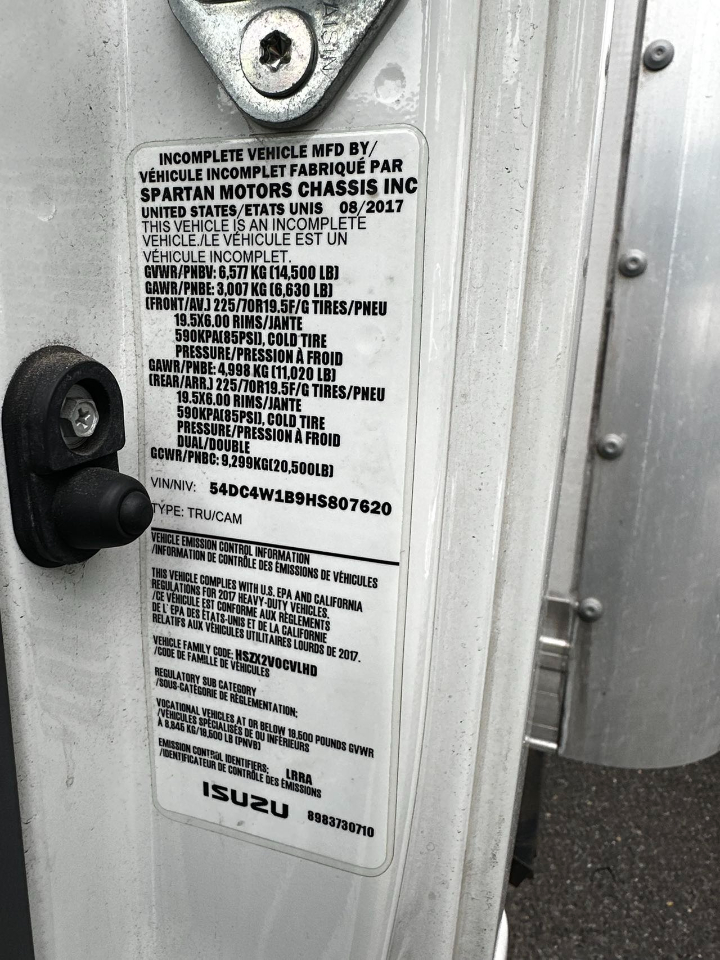 AISIN
INCOMPLETE VEHICLE MFD BY/
VÉHICULE INCOMPLET FABRIQUÉ PAR
SPARTAN MOTORS CHASSIS INC
UNITED STATES/ETATS UNIS 08/2017
THIS VEHICLE IS AN INCOMPLETE
VEHICLE./LE VÉHICULE EST UN
VÉHICULE INCOMPLET.
GVWR/PNBV: 6,577 KG (14,500 LB)
GAWR/PNBE: 3,007 KG (6,630 LB)
(FRONT/AV.) 225/70R19.5F/G TIRES/PNEU
19.5X6.00 RIMS/JANTE
590KPA(85PSI), COLD TIRE
PRESSURE/PRESSION À FROID
GAWR/PNBE: 4,998 KG (11,020 LB)
(REAR/ARR.) 225/70R19.5F/G TIRES/PNEU
19.5X6.00 RIMS/JANTE
590KPA(85PSI), COLD TIRE
PRESSURE/PRESSION À FROID
DUAL/DOUBLE
GCWR/PNBC: 9,299KG(20,500LB)
VIN/NIV: 54DC4W1B9HS807620
TYPE: TRU/CAM
VEHICLE EMISSION CONTROL INFORMATION
/INFORMATION DE CONTRÔLE DES ÉMISSIONS DE VÉHICULES
THIS VEHICLE COMPLIES WITH U.S. EPA AND CALIFORNIA
REGULATIONS FOR 2017 HEAVY-DUTY VEHICLES.
/CE VÉHICULE EST CONFORME AUX RÈGLEMENTS
DE L' EPA DES ÉTATS-UNIS ET DE LA CALIFORNIE
RELATIFS AUX VÉHICULES UTILITAIRES LOURDS DE 2017.
VEHICLE FAMILY CODE: HSZX2VOCVLHD
/CODE DE FAMILLE DE VÉHICULES
REGULATORY SUB CATEGORY
/SOUS-CATÉGORIE DE RÈGLEMENTATION:
VOCATIONAL VEHICLES AT OR BELOW 19,500 POUNDS GVWR
/VÉHICULES SPÉCIALISÉS DE OU INFÉRIEURS
À 8,845 KG/19,500 LB (PNVB)
EMISSION CONTROL IDENTIFIERS: LRRA
/IDENTIFICATEUR DE CONTRÔLE DES ÉMISSIONS
ISUZU 8983730710